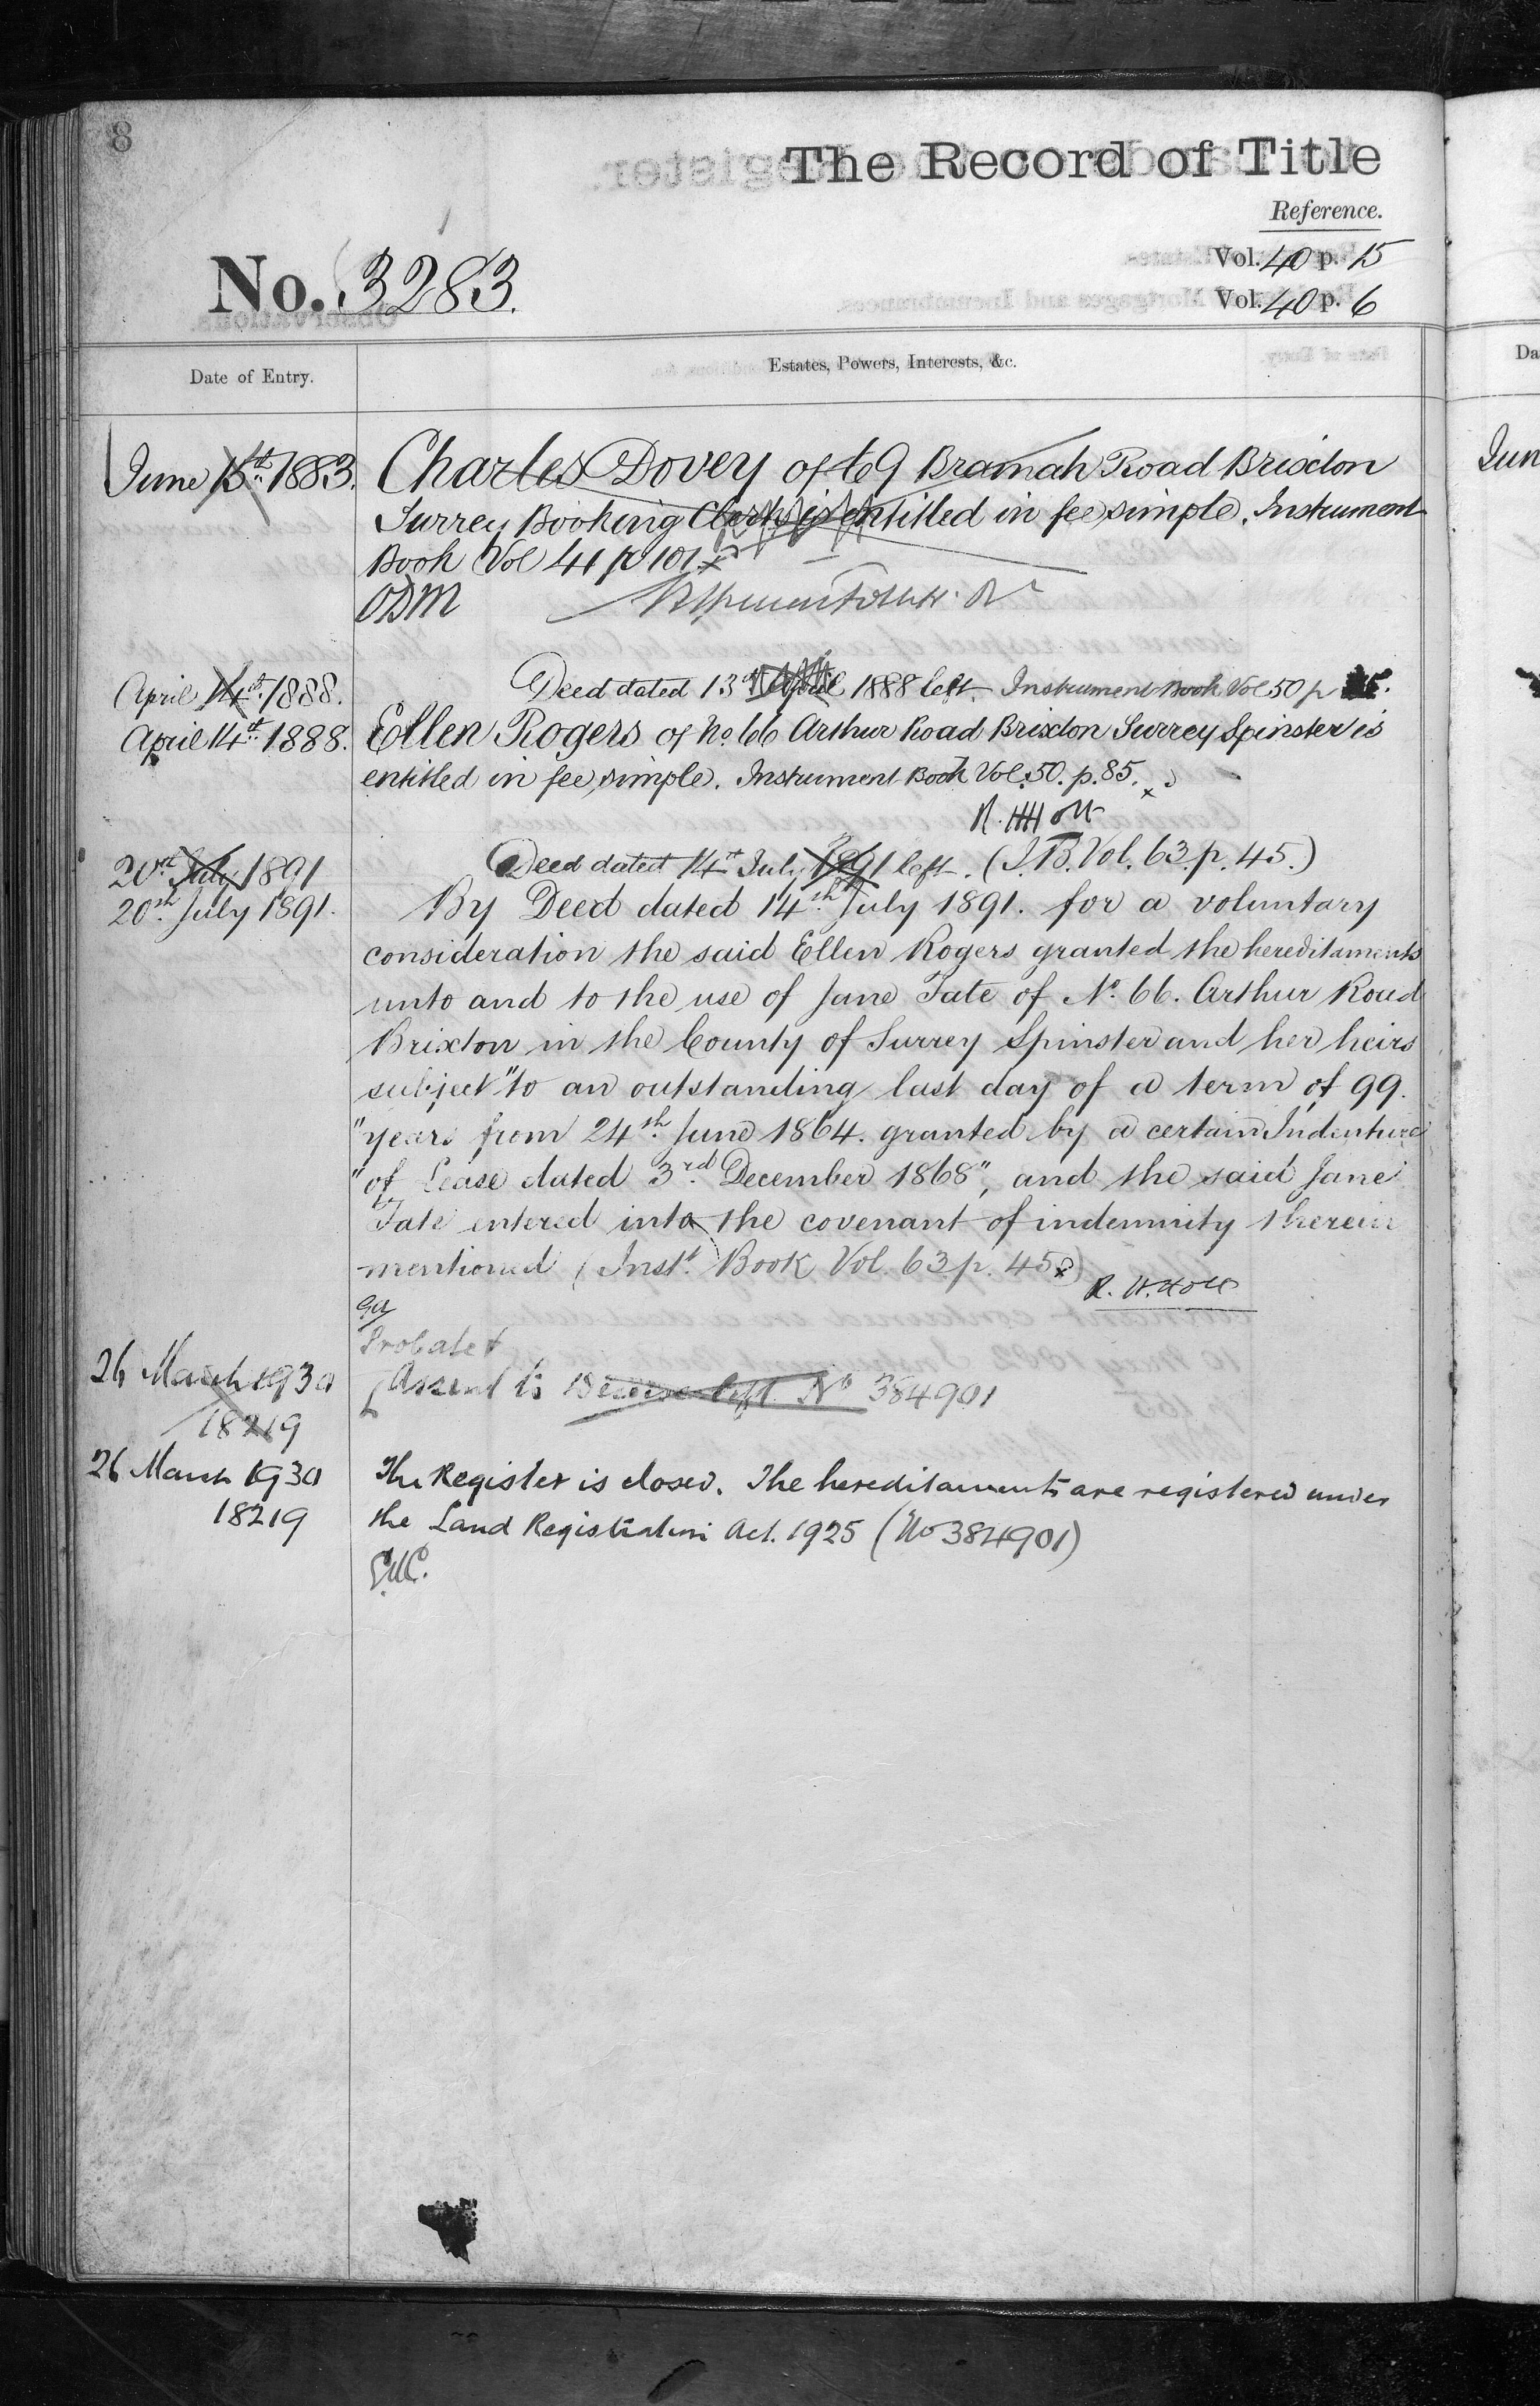 8
The Record of Title
Reference.
No. 3283.
Vol. 40 p. 15
Vol. 40 p. 6
Date of Entry.
Estates, Powers, Interests, &c.
June 15th 1883. Charles Dovey of 69 Bramah Road Brixton
Surrey Booking Clerk is entitled in fee simple. Instrument
Book Vol 41 p 101
ODM
April 14th 1888. Deed dated 13th April 1888 left. Instrument Book Vol 50 p
April 14th 1888. Ellen Rogers of No. 66 Arthur Road Brixton Surrey Spinster is
entitled in fee simple. Instrument Book Vol. 50. p. 85.
R. H Holt
20th July 1891 Deed dated 14th July 1891 left. (I.B. Vol. 63. p. 45.)
20th July 1891. By Deed dated 14th July 1891. for a voluntary
consideration the said Ellen Rogers granted the hereditaments
unto and to the use of Jane Tate of No. 66. Arthur Road
Brixton in the County of Surrey Spinster and her heirs
subject "to an outstanding last day of a term of 99.
"years from 24th June 1864. granted by a certain Indenture
"of Lease dated 3rd December 1868", and the said Jane
Tate entered into the covenant of indemnity therein
mentioned (Inst. Book Vol. 63 p. 45)
R. H. Holt
Probate &
26 March 1930 Assent to left. No 384901
18219
26 March 1930 The Register is closed. The hereditaments are registered under
18219 the Land Registration Act. 1925 (No 384901)
Da
Jun